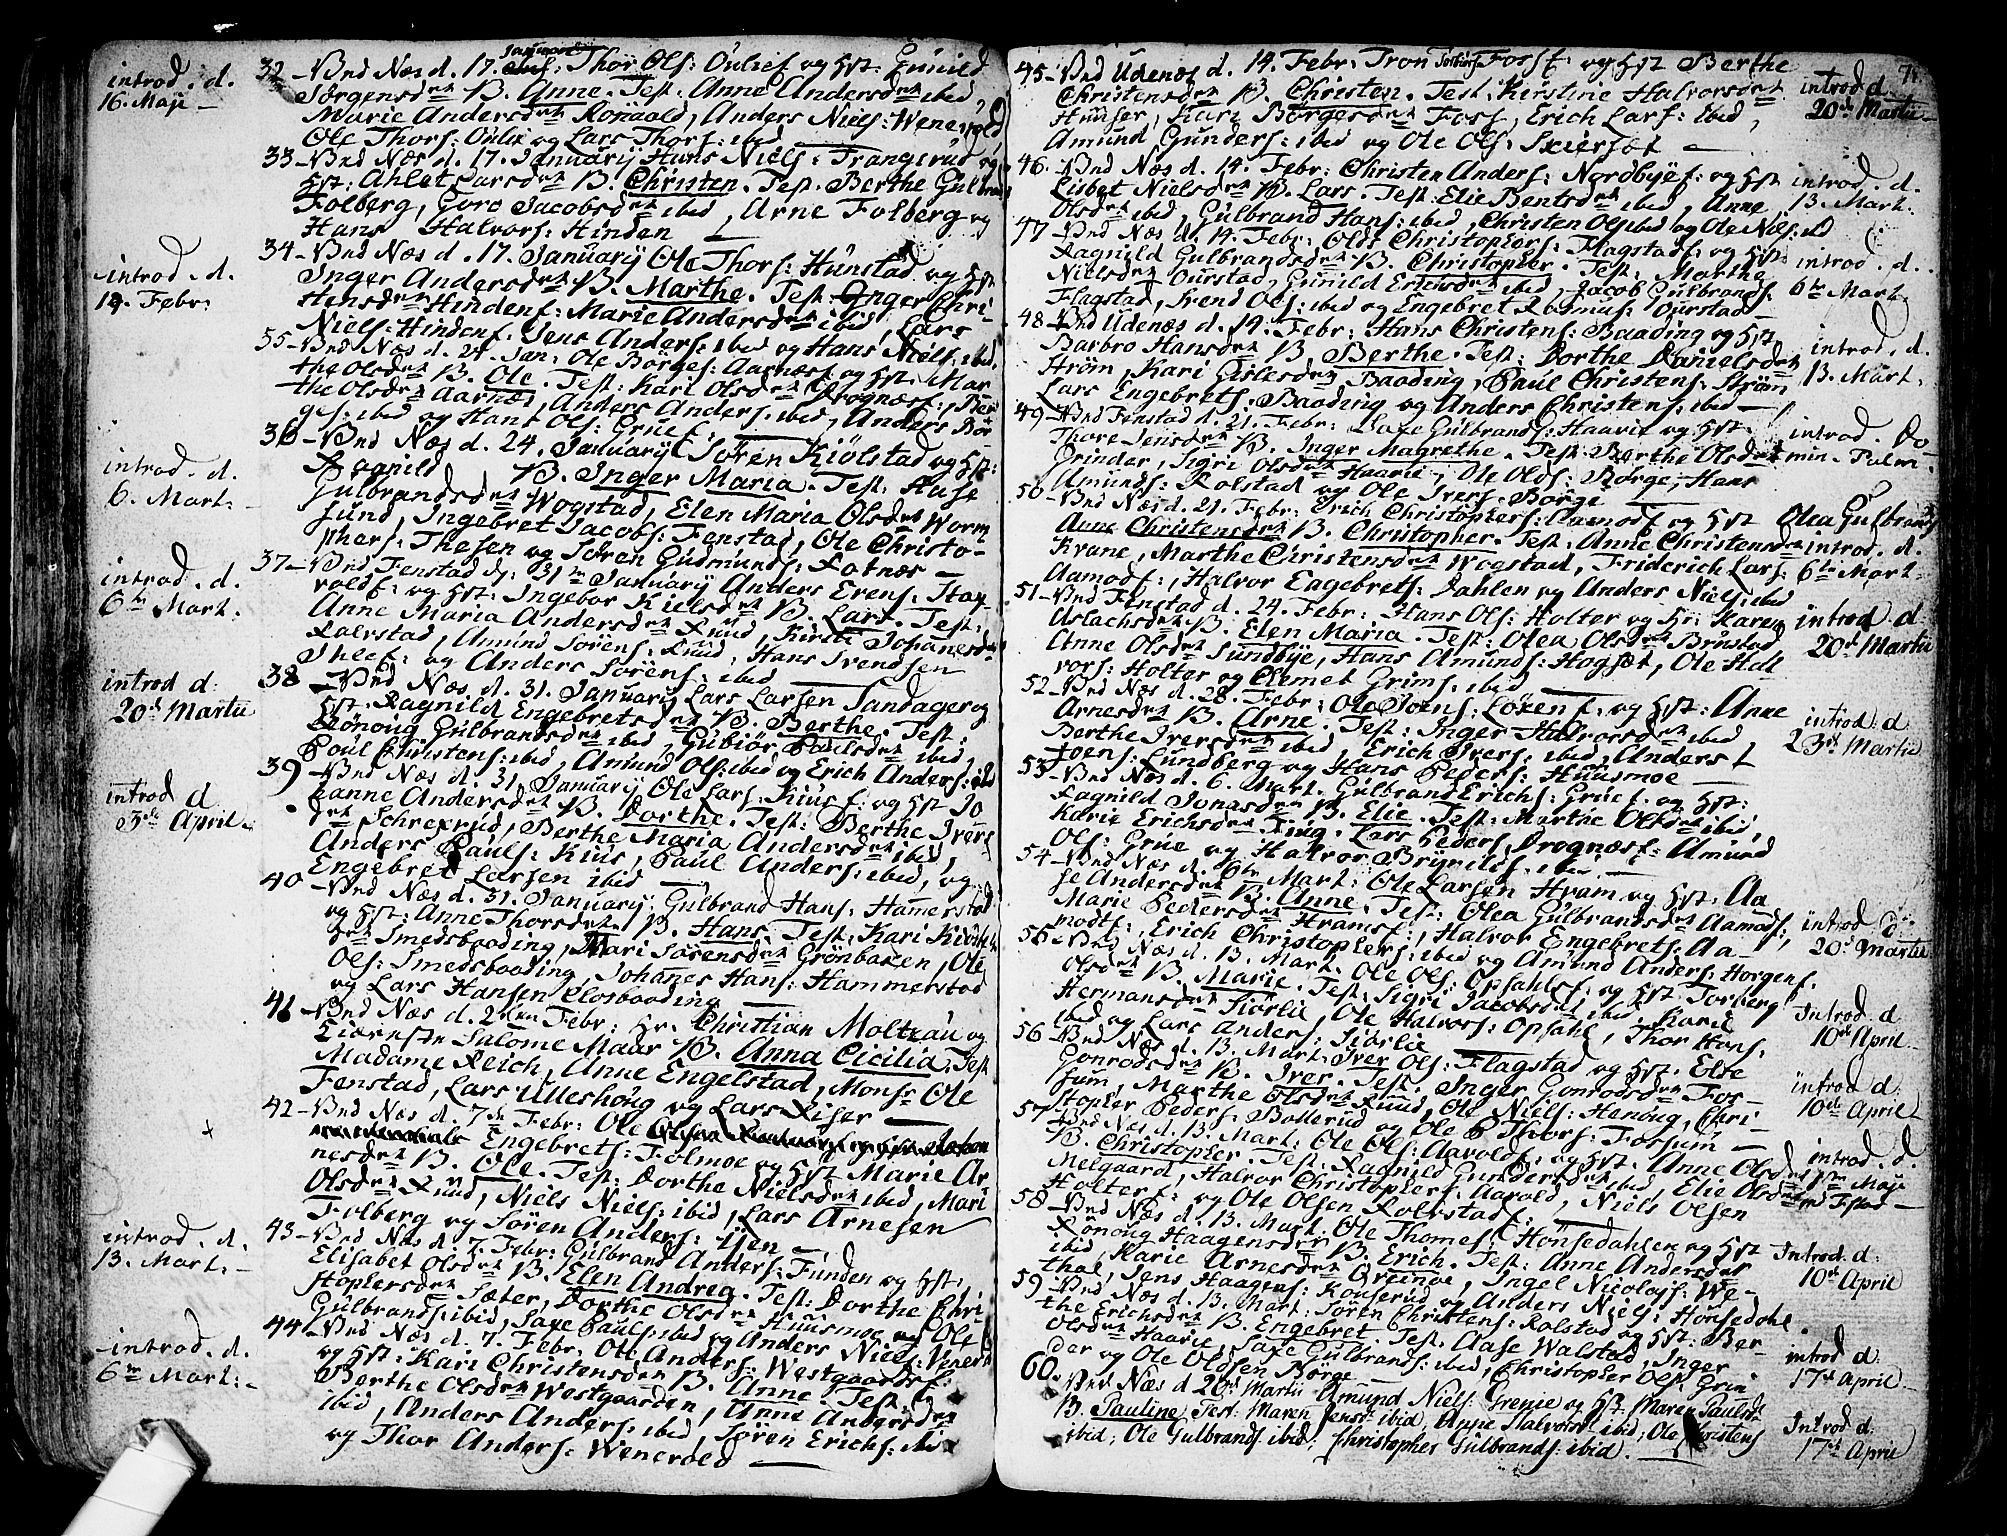 introd. d.
16. Maji –
32 – Bnd Næs d. 17. January Thor Ols: Oulie f og Hst: Gunild
Jörgensdtr B. Anne. Test: Anne Andersdtr ibid,
Marie Andersdtr Romaald, Anders Niels: Wenevold
Ole Thors: Oulie og Lars Thors: ibid –
33 – Bnd Næs d. 17. January Hans Niels: Trangerud og
Hst: Ahlet Larsdtr B. Christen. Test. Berthe Gulbrands
Folberg, Goro Jacobsdtr ibid, Arne Folberg og
Hans Halvors: Hinden –
introd. d.
14. Febr:
34 – Bnd Næs d. 17. January Ole Thors: Hunstad og Hst
Inger Andersdtr B. Marthe. Test. Inger Chri-
stensdtr Hinden f: Marie Andersdtr ibid, Lars
Niels: Hinden f: Jens Anders: ibid og Hans Niels: ibid.
35 – Bnd Næs d. 24. Jan: Ole Börges: Aarnæs f og Hst: Mar-
the Olsdtr B. Ole. Test: Kari Olsdtr Drognæs f:, Ber-
the Olsdtr Aarnæs, Anders Anders: ibid, Anders Bör-
ges: ibid og Hans Ols: Grue f. –
introd. d.
6. Mart: –
36 – Bnd Næs d. 24. January Sören Kiölstad og Hst:
Ragnild B. Inger Maria. Test: Aase
Gulbrandsdtr Wogstad, Elen Maria Olsdtr Worm
sund, Ingebret Jacobs: Fenstad, Ole Christo-
phers: Thesen og Sören Gudmunds: Rotnæs –
introd. d.
6te Mart.
37 – Bnd Fenstad d: 31te January Anders Erens: Hax-
vold f: og Hst: Ingebor Kielsdtr B. Lars. Test:
Anne Maria Andersdtr Ruud, Kirsti Johanesdtr
Rolvstad, Amund Sörens: Ruud, Hans Svendsen
Ihle f: og Anders Sörens: ibid –
introd d:
20de Martii
38 – Bnd Næs. d. 31. January Lars Larsen Sandager og
Hst. Ragnild Engebretsdtr B. Berthe. Test:
Rönoug Gulbrandsdtr ibid, Gubiör Paulsdtr ibid,
Poul Christens: ibid, Amund Ols: ibid og Erich Anders: ibid
introd d
3die April –
39 – Bnd Næs d. 31. January Ole Lars: Kius f: og Hst Jo
hanne Andersdtr B. Dorthe. Test: Berthe Ivers
dtr Schrexrud, Berthe Maria Andersdtr ibid,
Anders Pauls: Kius, Paul Anders: ibid, og
Engebret Larsen ibid –
40 – Bnd Næs d. 31. January Gulbrand Hans: Hamerstad
og Hst: Anne Thorsdtr B. Hans. Test: Kari
Smedsbaading, Mari Sörensdtr Grönbaken, Ole
Ols: Smedsbaading, Johanes Hans: Hammerstad
og Lars Hansen Closbaading –
41 – Bnd Næs d. 2den Febr: Hr. Christian Moltzau og
Salome Maar B. Anna Cicilia. Test
Madame Reich, Anne Engelstad, Monsr Ole
Fenstad, Lars Ulleshoug og Lars Riser –
42 – Bnd Næs d. 7de Febr: Ole
Engebrets: Folmoe og Hst Marie Ar
nesdtr B. Ole. Test: Dorthe Nielsdtr ibid, Mari
Olsdtr Ruud, Niels Niels: ibid, Lars Arnesen
Folberg og Sören Anders: Ijen –
introd. d.
13. Mart: –
43 – Bnd Næs d. 7. Febr: Gulbrand Anders: Funden og Hst:
Elisabet Olsdtr B. Elen Andrea. Test: Dorthe Chri-
stophersdtr Sæter, Dorthe Olsdtr Huusmoe og Ole
Gulbrands: ibid, Saxe Pauls: ibid og Anders Niels: Wenevold
introd. d.
6te Mart: –
44 – Bnd Næs d. 7. Febr. Ole Anders: Westgaards f.
og Hst: Kari Christensdtr B. Anne. Test:
Berthe Olsdtr Westgaarden, Anne Andersdtr
ibid, Anders Anders: ibid, Sören Erichs: ibid
og Thor Anders: Wenevold –
45 – Bnd Udenæs d. 14. Febr: Tron Torbiörs: Foss f: og Hst Berthe
Christensdtr B. Christen. Test. Kirstine Halvorsdtr
Huuser, Kari Börgesdtr Foss, Erich Lars: ibid,
Amund Gunders: ibid og Ole Ols: Skiersæt –
introd d.
20de Martii
46. – Bnd Næs d. 14. Febr: Christen Anders: Nordbye f: og Hst
Lisbet Nielsdtr B. Lars. Test: Elie Bentsdtr ibid, Anne
Olsdtr ibid, Gulbrand Hans: ibid, Christen Ols: ibid og Ole Niels: ibid
introd. d.
13. Mart.
47 – Bnd Næs d. 14. Febr: Ole Christophers: Flagstad f: og Hst:
Ragnild Gulbrandsdtr B. Christopher. Test: Marthe
Nielsdtr Ourstad, Gunild Erichsdtr ibid, Jacob Gulbrands:
Flagstad, Svend Ols: ibid og Engebret Rasmus: Ourstad –
introd. d.
6te Mart.
48 – Bnd Udenæs d. 14. Febr: Hans Christens: Baading og Hst
Barbro Hansdtr B. Berthe. Test: Dorthe Danielsdtr
Ström, Kari Gislesdtr Baading, Paul Christens: Ström
Lars Engebrets: Baading og Anders Christens: ibid –
introd. d.
13. Mart:
49 – Bnd Fenstad d. 21. Febr: Saxe Gulbrands: Haarie og Hst
Thore Jensdtr B. Inger Magrethe. Test: Berthe Olsdtr
Grinder, Sigri Olsdtr Haarie, Ole Olds: Börge, Hans
Amunds: Rolstad og Ole Ivers: Börge –
introd. Do-
min. Palm.
50 – Bnd Næs d. 21. Febr: Erich Christophers: Aamods f og Hst
Anne Christensdtr B. Christopher. Test: Anne Christensdtr
Krane, Marthe Christensdtr Wogstad, Friderich Lars:
Aamods f:, Halvor Engebrets: Dahlen og Anders Niels: ibid
Olea Gulbrands
introd. d.
6te Mart:
51 – Bnd Fenstad d. 24. Febr: Hans Ols: Holter og Hst: Karen
Aslachsdtr B. Elen Maria. Test: Olea Olsdtr Brustad,
Anne Olsdtr Sundbye, Hans Amunds: Hogset, Ole Hal
vors: Holter og Clemet Grims: ibid –
introd d:
20de Martii
52 – Bnd Næs d. 28. Febr: Ole Joens: Loren f: og Hst: Anne
Arnesdtr B. Arne. Test: Inger Halvorsdtr ibid
Berthe Iversdtr ibid, Erich Ivers: ibid, Anders
Joens: Lundberg og Hans Peders: Huusmoe –
introd: d
23de Martii
53 – Bnd Næs d. 6. Mart. Gulbrand Erichs: Grue f. og Hst:
Ragnild Jonasdtr B. Elie. Test: Marthe Olsdtr ibid,
Karie Erichsdtr Ring, Lars Peders: Drognæs f: Amund
Ols: Grue og Halvor Brynilds: ibid –
54 – Bnd Næs d. 6te Mart: Ole Larsen Hvam og Hst: Aa
se Andersdtr B. Anne. Test: Olea Gulbrandsdtr Aamods f:,
Marie Pedersdtr Hvams f:, Halvor Engebrets: Aa-
mods f:, Erich Christophers: ibid og Amund Anders: Horgens f.
introd d:
20de Martii
55 – Bnd Næs d. 13. Mart. Ole Ols: Opsahls f: og Hst Torberg
Olsdtr B. Marie. Test: Sigri Jacobsdtr ibid, Karie
Hermansdtr Siörlie, Ole Halvors: Opsahl, Thor Hans:
ibid og Lars Anders: Siörlie –
Introd. d
10de April –
56 – Bnd Næs d. 13. Mart: Iver Ols: Flagstad og Hst. Elie
Gonrodsdtr B. Iver. Test. Inger Gonrodsdtr Fos-
sum, Marthe Olsdtr Ruud, Ole Niels: Henoug, Chri-
stopher Peders: Bollerud og Ole Thors: Fossum –
introd d:
10de April
57 – Bnd Næs d. 13. Mart: Ole Ols: Aarvold f: og Hst. Anne Olsdtr
B. Christopher. Test. Ragnild Gundersdtr ibid, Elie Olsdtr
Melgaard, Halvor Christophers: Aarvold, Niels Olsen
Holter f: og Ole Olsen Rolvstad f: –
introd. d.
1ste Maji
58 – Bnd Næs d. 13. Mart. Ole Thomes: Hönsedahlen og Hst
Rönoug Haagensdtr B. Erich. Test: Anne Andersdtr
ibid, Karie Arnesdtr Greinoe, Ingel Nicolajs: We-
thal, Jens Haagens: Konserud og Anders Niels: Hönsedahl
Introd. d:
10de April
59 – Bnd Næs d. 13. Mart: Sören Christens: Rolstad og Hst: Ber-
the Erichsdtr B. Engebret. Test. Aase Walstad, Inger
Olsdtr Haarie, Saxe Gulbrands: ibid, Christopher Ols: Grin
der og Ole Oldsen Börge –
introd d:
17de April
60. – Bnd Næs d 20de Martii Amund Niels: Grenie og Hst. Maren Paulsd
B. Pauline Test: Maren Jensd: ibid, Anne Halvorsd: ibid, Ole Christens
ibid, Ole Gulbrands ibid, Christopher Gulbrands: ibid. –
Introd d:
17de April